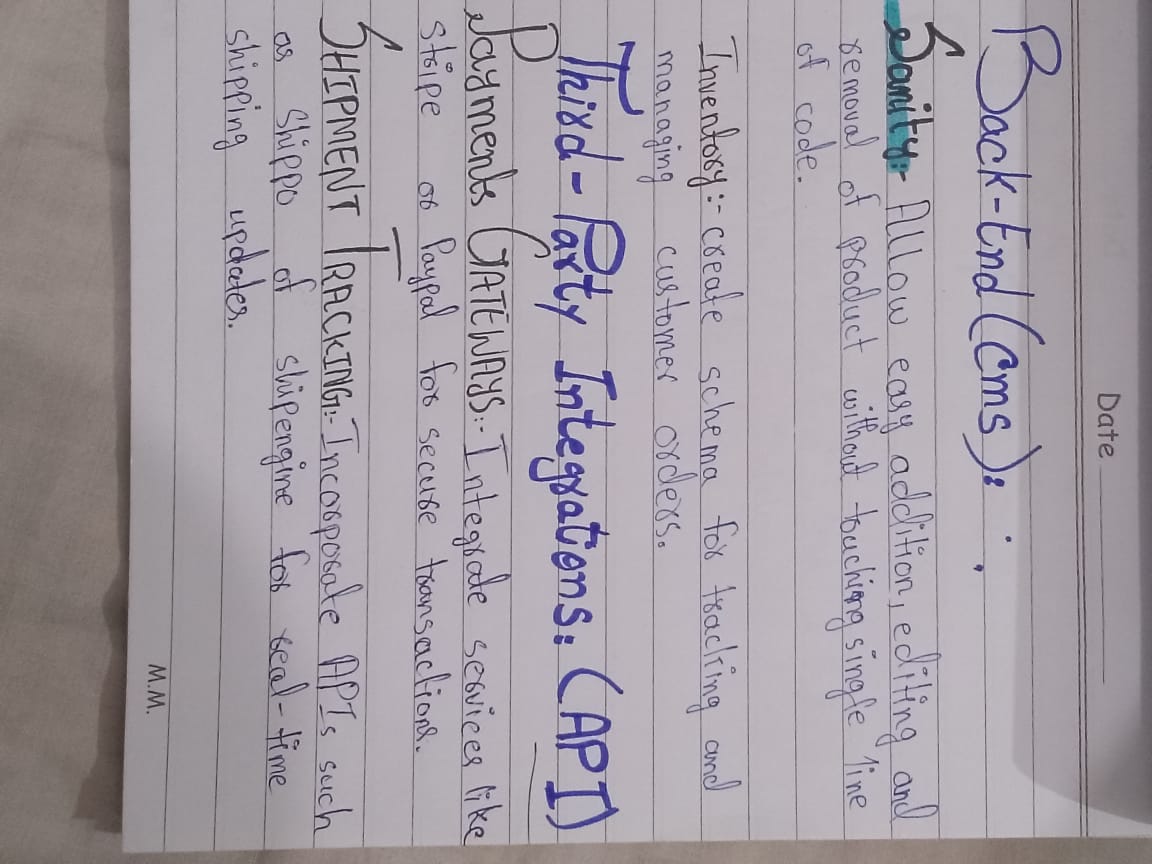 Date
Back-End (Cms):
Sanity:- Allow easy addition, editing and
removal of product without touching single line
of code.
Inventory:- create schema for tracling and
managing customer orders.
Third-Party Integrations: (API)
Payments GATEWAYS:- Integrate services like
Stripe or Paypal for secure transactions.
SHIPMENT TRACKING:- Incorporate APIs such
as Shippo of shipengine for real-time
shipping updates.
M.M.